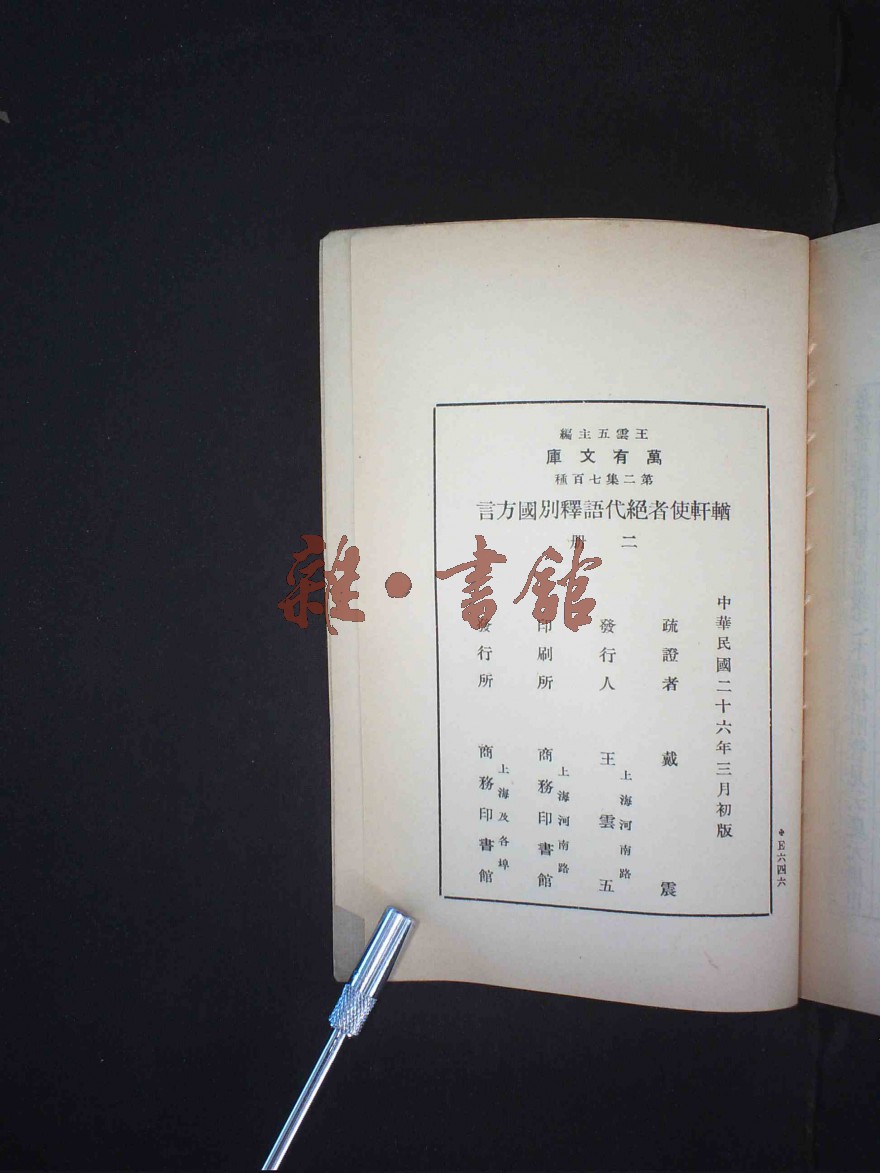 王雲五主編
萬有文庫
第二集七百種
輶軒使者絕代語釋別國方言
二册
中華民國二十六年三月初版
疏證者 戴震
發行人 王雲五
上海河南路
印刷所 商務印書館
上海河南路
發行所 商務印書館
上海及各埠
六四六
雜·書館